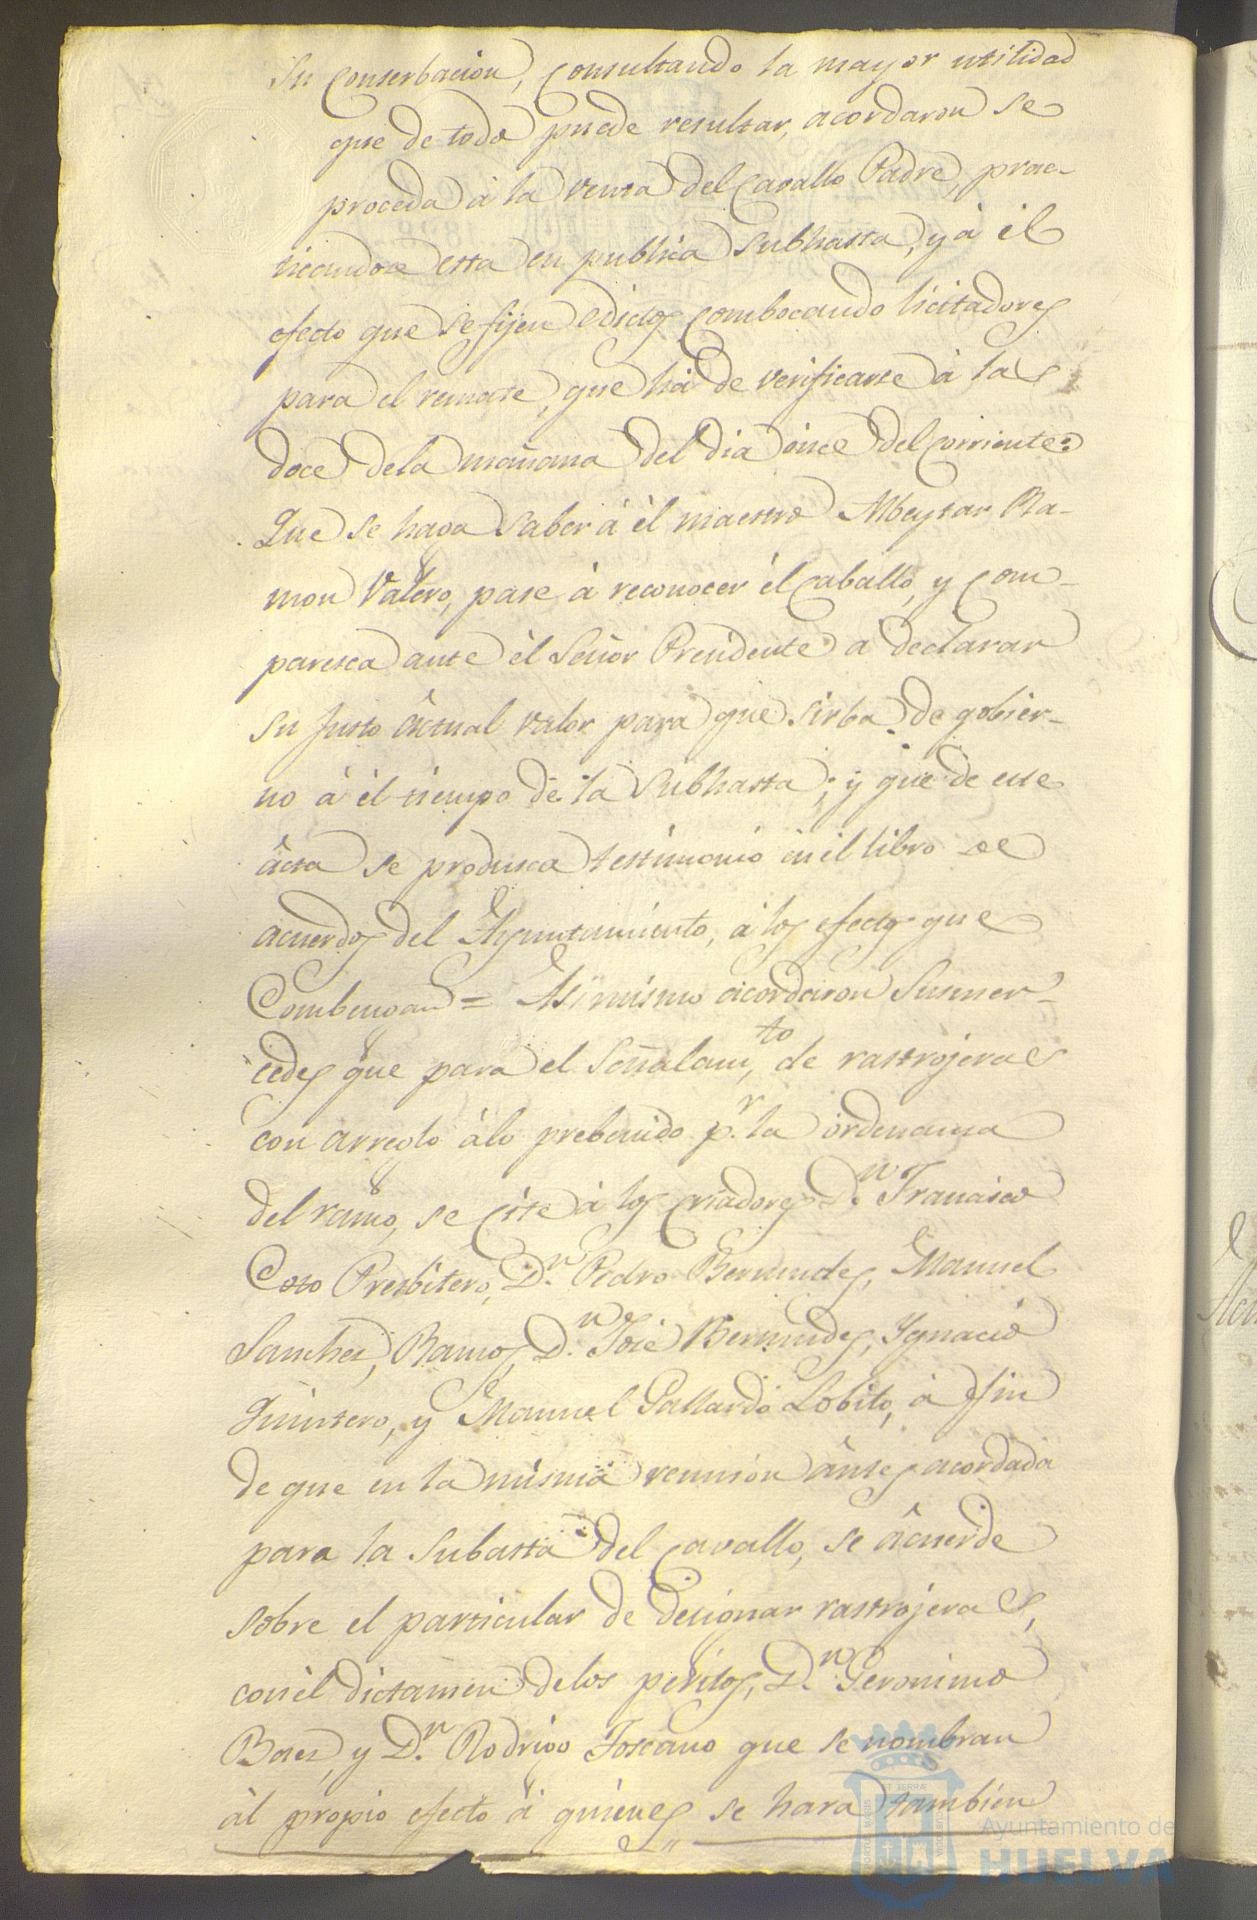 Su Conserbacion, Consultando la mayor utilidad
que de todo puede resultar, acordaron se
proceda à la venta del Cavallo Padre, prac-
ticandose esta en publica Subhasta, y à èl
efecto que se fijen Edictos Combocando licitadores
para el remate, que hà de verificarse à las
doce de la mañana del dia once del corriente:
Que se haga saber à èl maestro Albeytar Ra-
mon Valero, pase à reconocer èl Caballo, y Com-
paresca ante èl Señor Presidente à declarar
su justo âctual valor para que sirba de gobier-
no à èl tiempo de la Subhasta; y que de este
âcta se produsca testimonio en èl libro de
acuerdos del Ayuntamiento, à los efectos que
Combengan = Asimismo acordaron Susmer-
cedes que para el Señalam.to de rastrojeras
con arreglo àlo prebenido p.r la ordenanza
del ramo, se Cite à los Criadores D.n Francisco
Coto Presbitero, D.n Pedro Bermudes, Manuel
Sanchez, Ramos, D.n José Bermudes, Ygnacio
Quintero, y Manuel Gallardo Lobito, à fin
de que en la misma reunion ântes acordada
para la Subasta del Cavallo, se âcuerde
sobre el particular de designar rastrojeras,
con èl dictamen de los peritos, D.n Geronimo
Baez, y D.n Rodrigo Toscano que se nombran
àl propio efecto à quienes se hara tambien
Ayuntamiento de
HUELVA